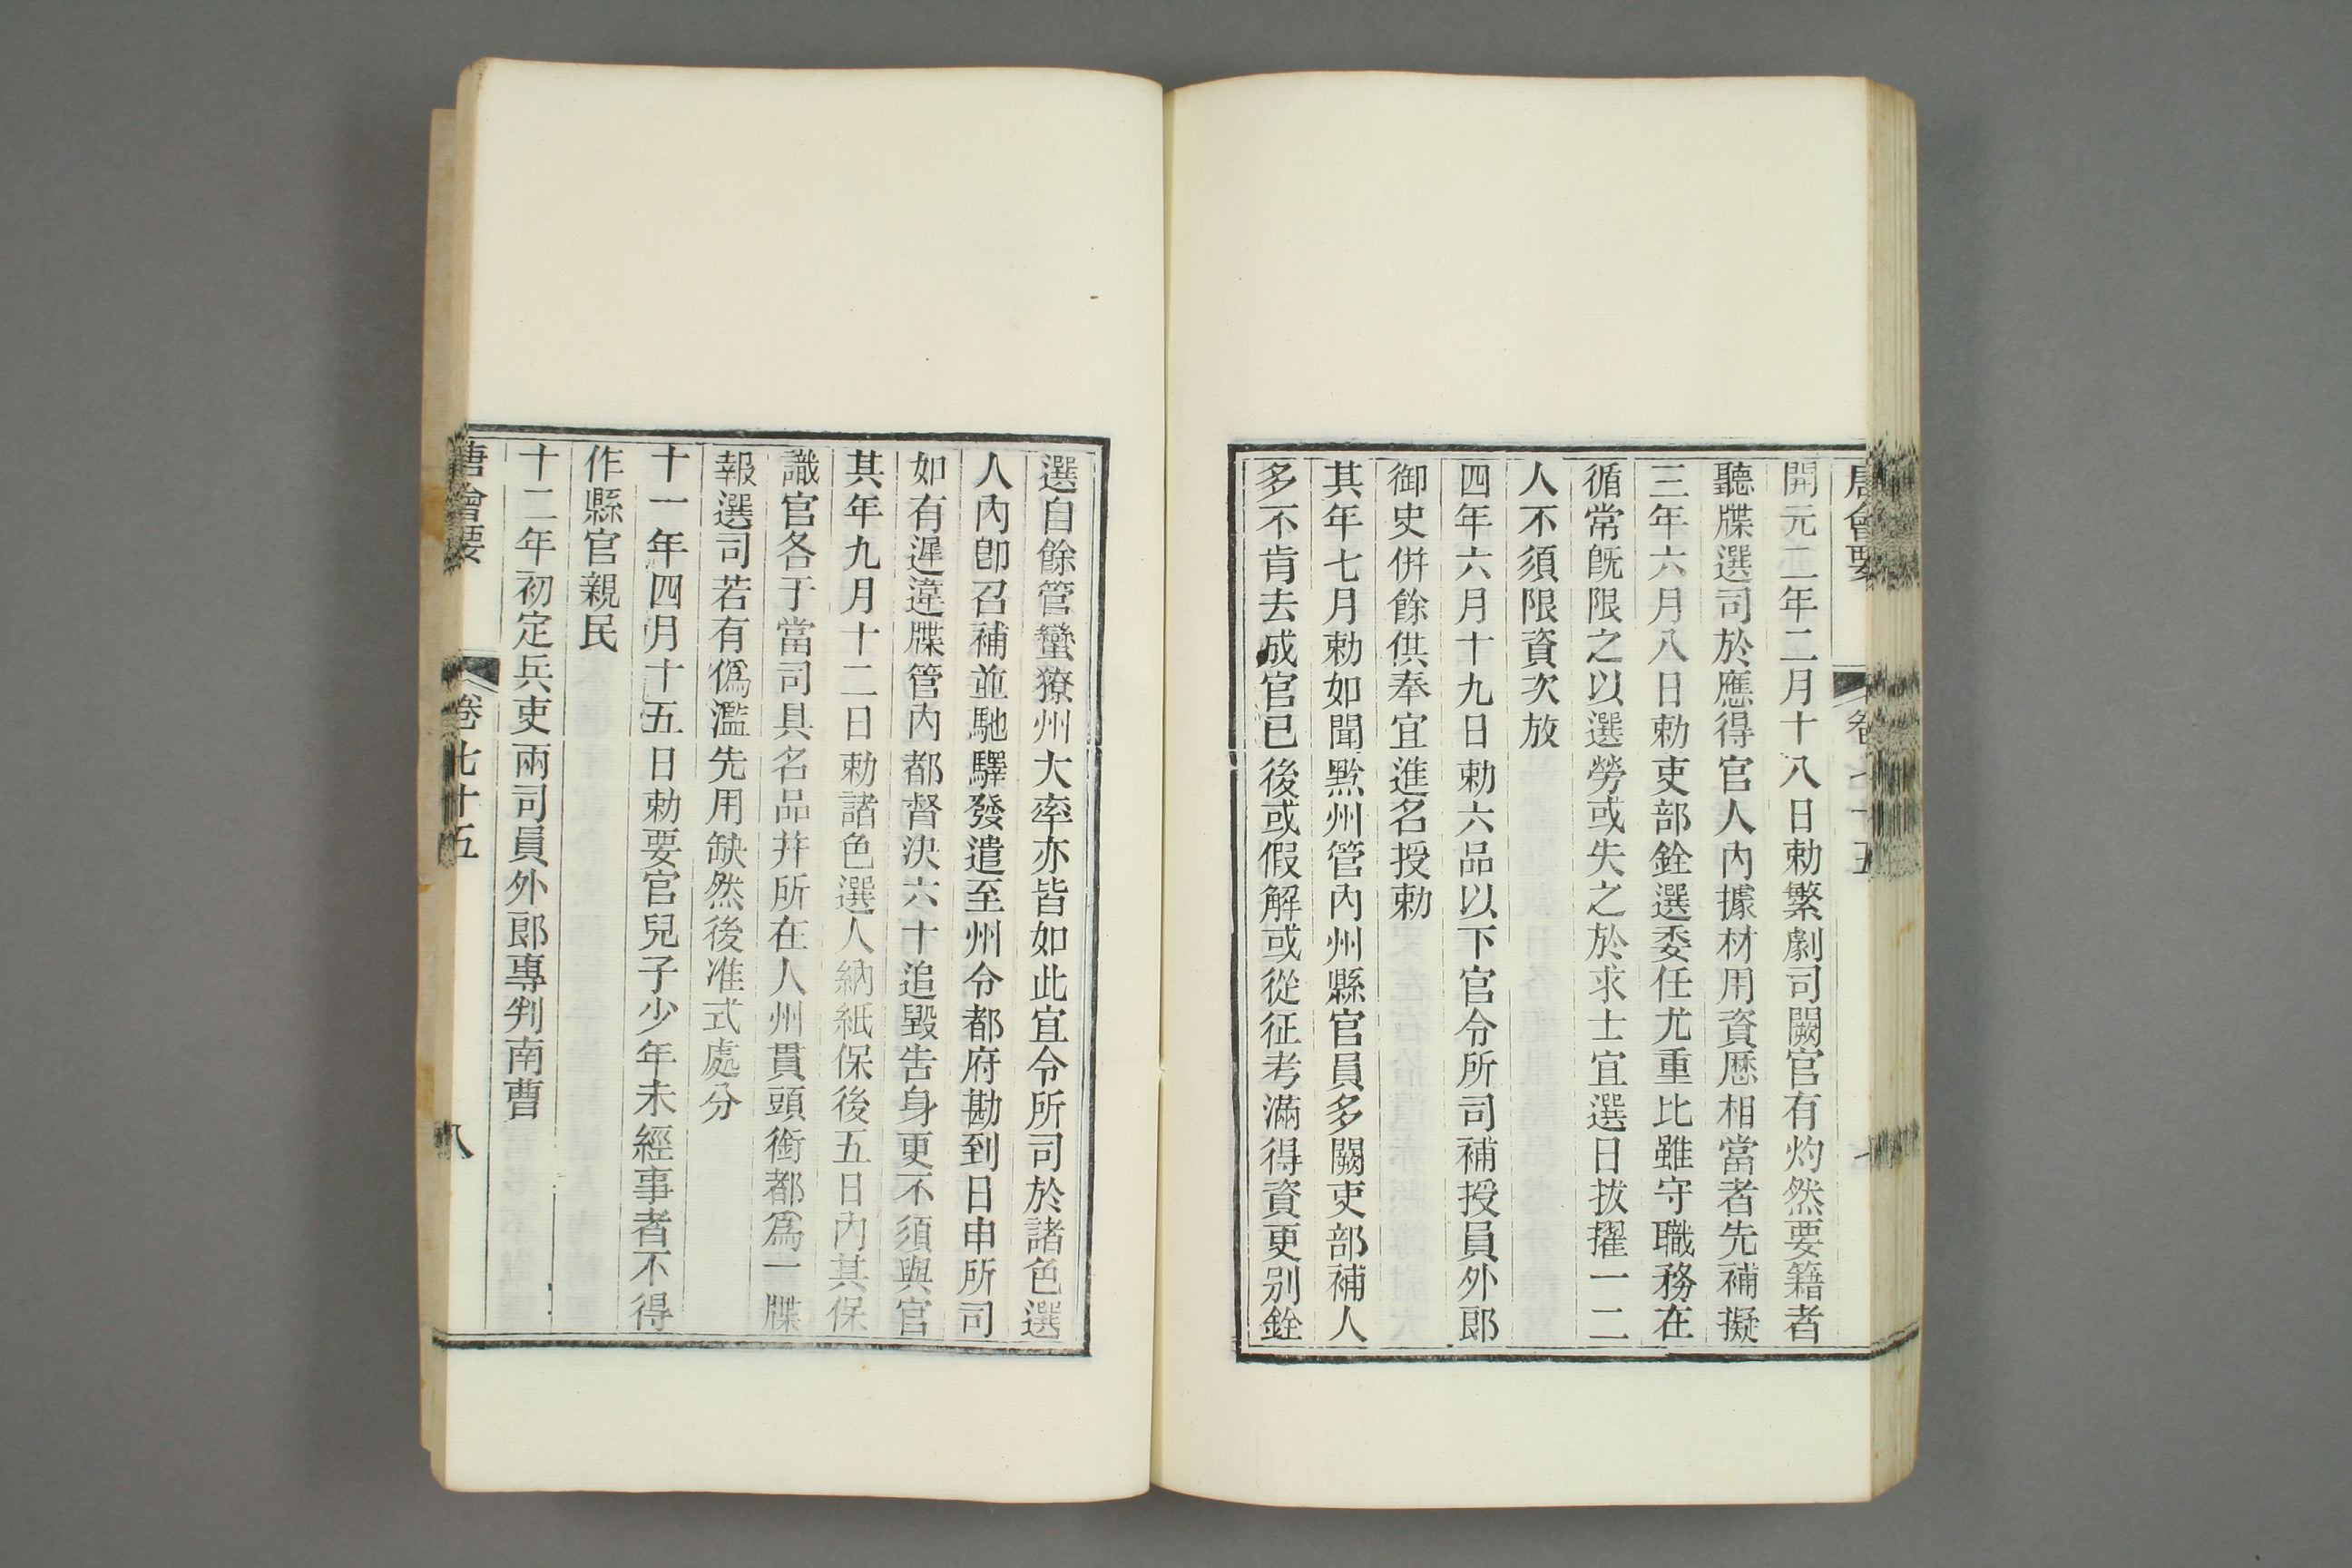 唐會要 卷七十五 七
開元二年二月十八日勅繁劇司闕官有灼然要籍者
聽牒選司於應得官人內據材用資歷相當者先補擬
三年六月八日勅吏部銓選委任尤重比雖守職務在
循常旣限之以選勞或失之於求士宜選日拔擢一二
人不須限資次放
四年六月十九日勅六品以下官令所司補授員外郎
御史併餘供奉宜進名授勅
其年七月勅如聞黔州管內州縣官員多闕吏部補人
多不肯去成官已後或假解或從征考滿得資更別銓
選自餘管蠻獠州大率亦皆如此宜令所司於諸色選
人內卽召補並馳驛發遣至州令都府勘到日申所司
如有遲違牒管內都督決六十追毀告身更不須與官
其年九月十二日勅諸色選人納紙保後五日內其保
識官各于當司具名品幷所在人州貫頭銜都爲一牒
報選司若有僞濫先用缺然後准式處分
十一年四月十五日勅要官兒子少年未經事者不得
作縣官親民
十二年初定兵吏兩司員外郎專判南曹
唐會要 卷七十五 八